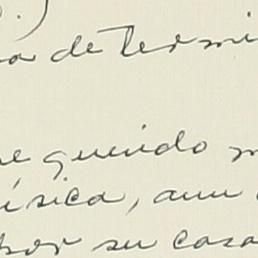 de termi
querido m
ísica, aun
por su casa